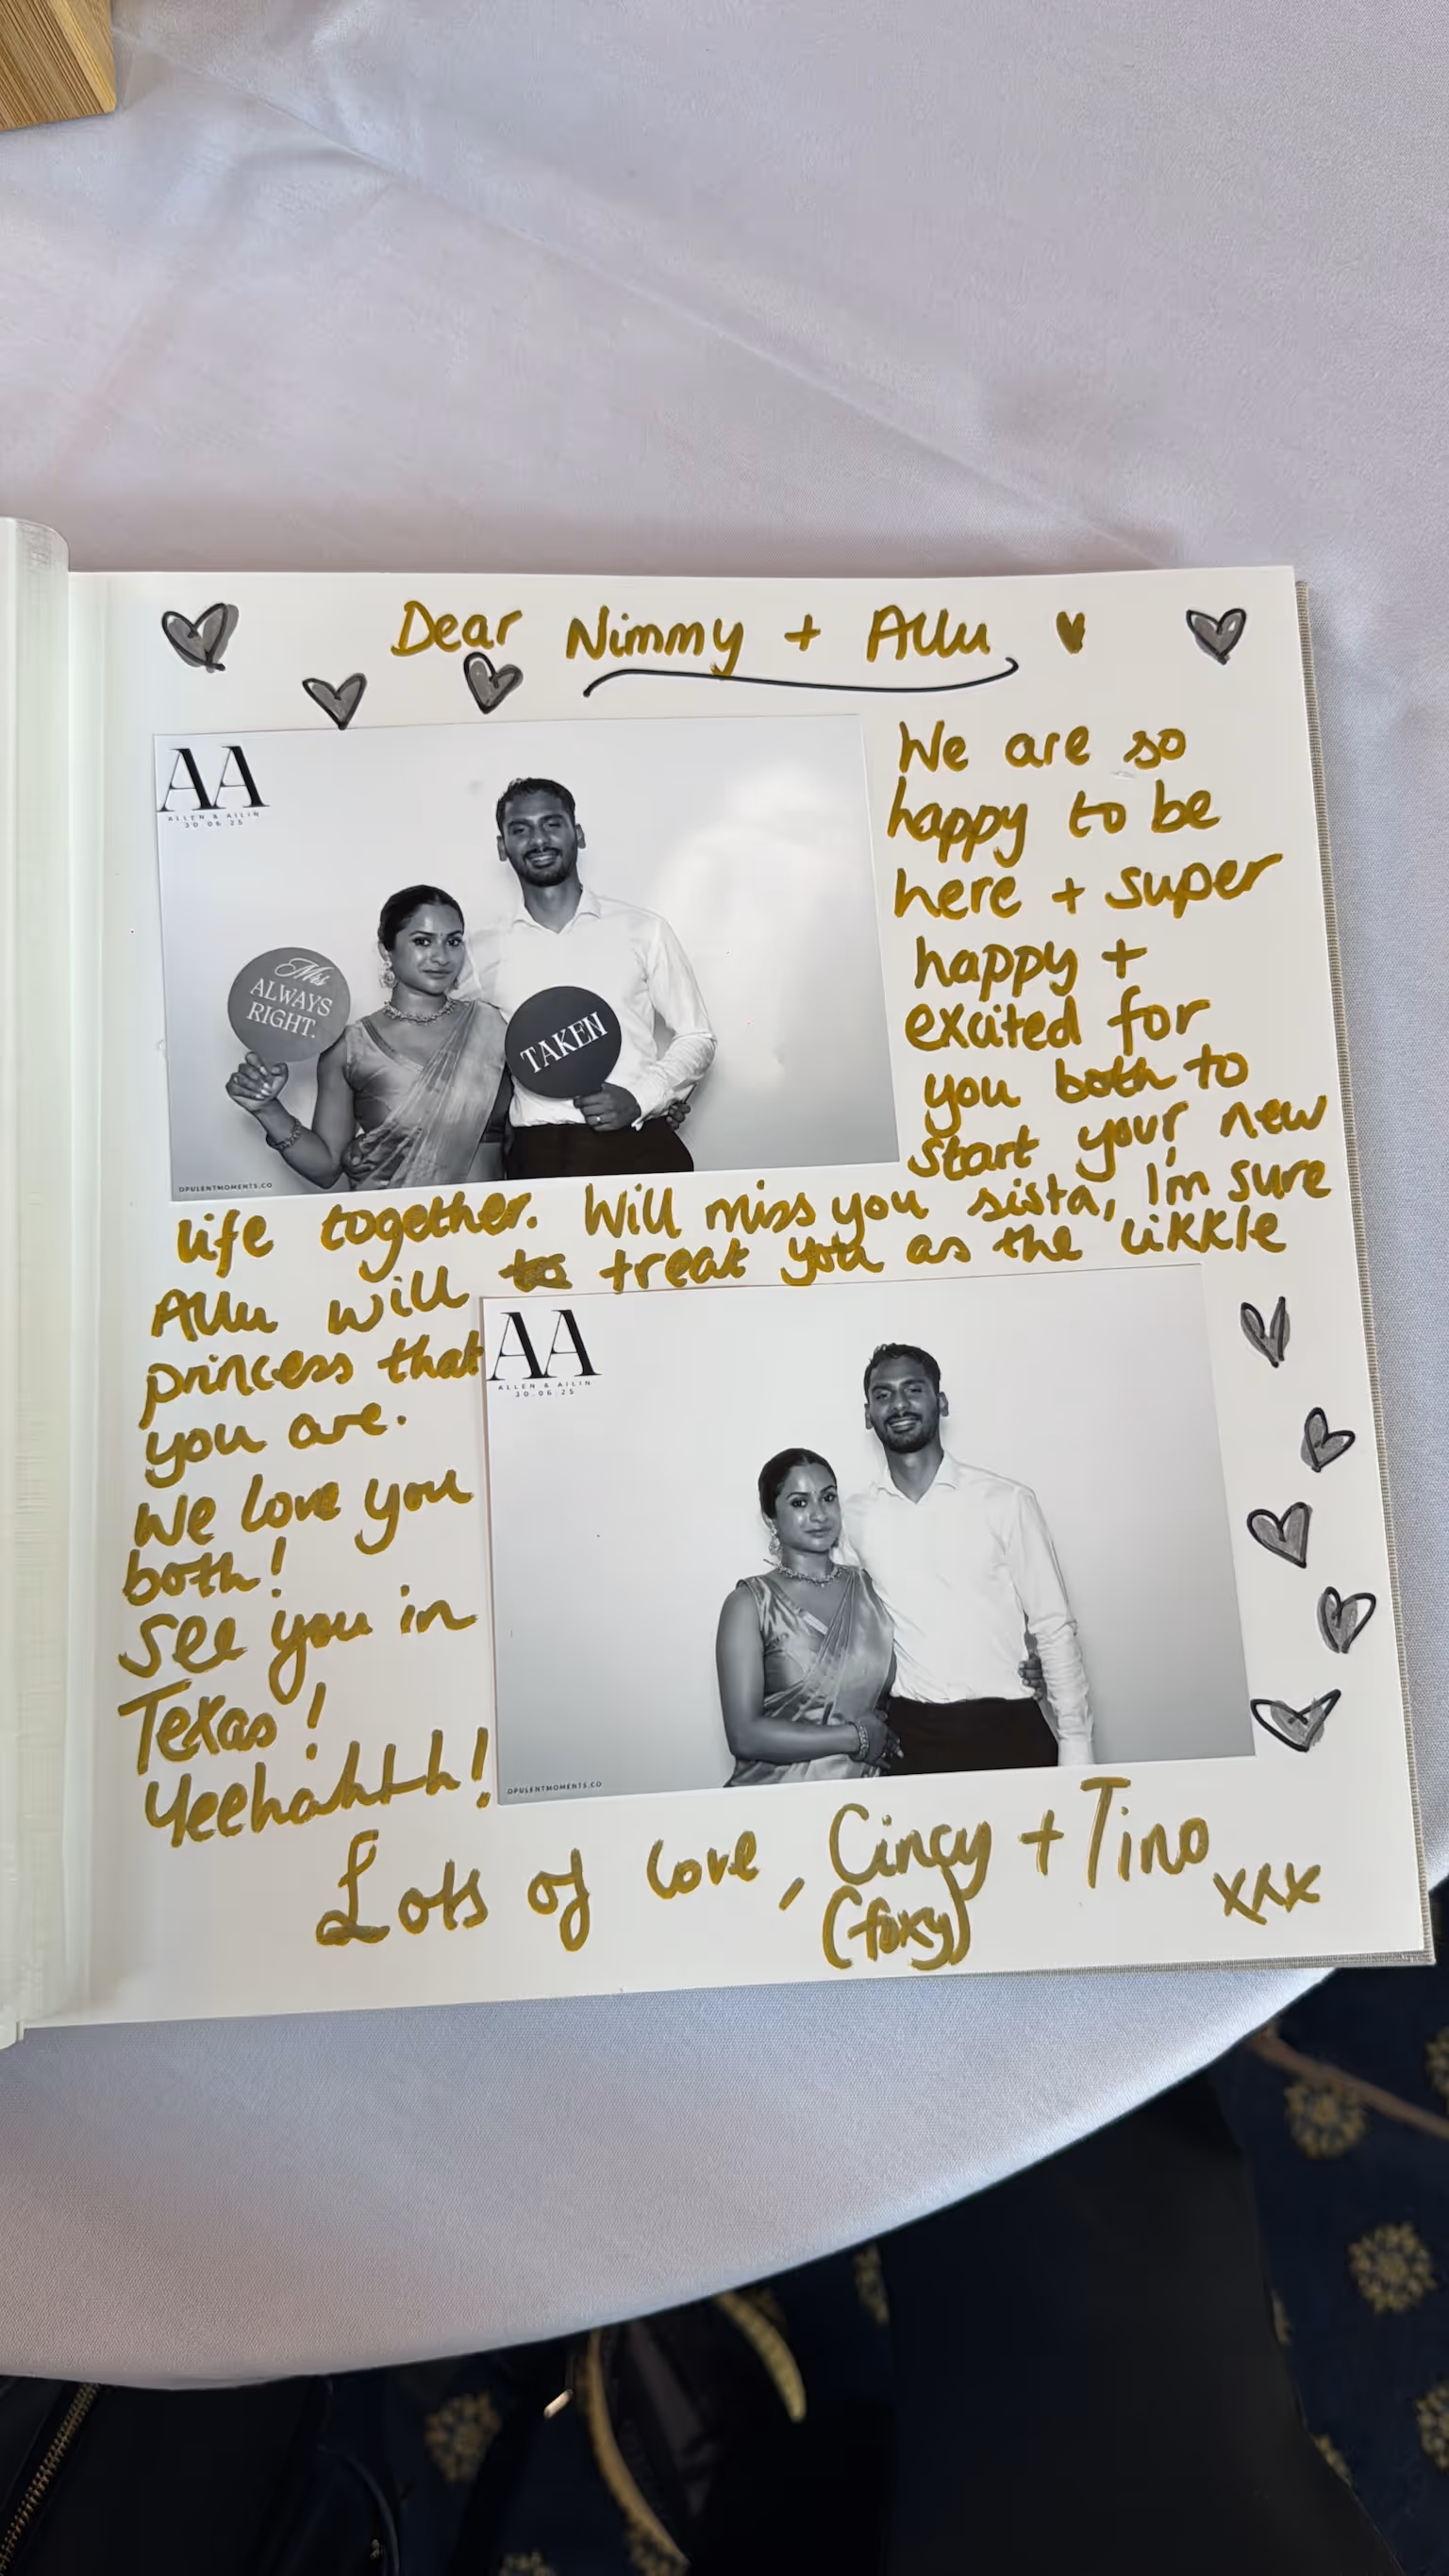 Dear Nimmy + Allu
AA
ALLEN & AILIN
30.06.25
Mrs
ALWAYS
RIGHT.
TAKEN
OPULENTMOMENTS.CO
We are so
happy to be
here + super
happy +
excited for
you both to
start your new
life together. Will miss you sista, I'm sure
Allu will to treat you as the likkle
princess that
you are.
We love you
both!
See you in
Texas!
Yeehahhh!
AA
ALLEN & AILIN
30.06.25
OPULENTMOMENTS.CO
Lots of love, Cincy + Tino
(foxy)
xxx